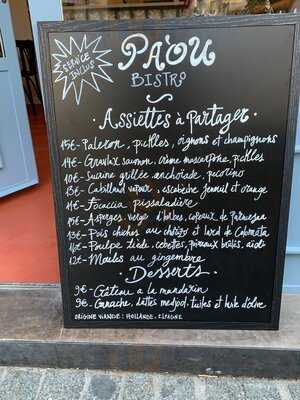 SERVICE
INCLUS
PA'OU
BISTRO
Assiettes à Partager
15€- Paleron, pickles, oignons et champignons
14€- Gravlax saumon, crème mascarpone, pickles
10€- Sucrine grillée anchoïade, pecorino
13€- Cabillaud vapeur, escabèche fenouil et orange
11€- Focaccia pissaladière
15€- Asperges vierge d'herbes, copeaux de Parmesan
13€- Pois chiches au chorizo et lard de Colonnata
16€- Poulpe tiède, cébettes, poireaux brûlés, aïoli
12€- Moules au gingembre
Desserts
9€- Gâteau a la mandarin
9€- Ganache, dattes medjol, tuiles et huile d'olive
ORIGINE VIANDE: HOLLANDE, ESPAGNE